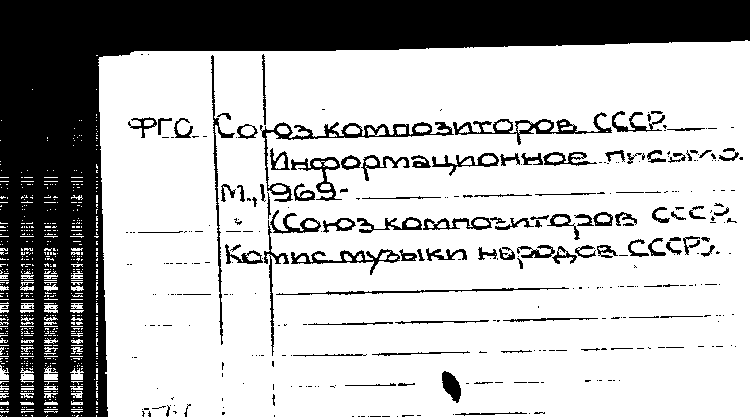 ФГО Союз композиторов СССР.
Информационное письмо.
М., 1969-
(Союз композиторов СССР.
Комис музыки народов СССР).